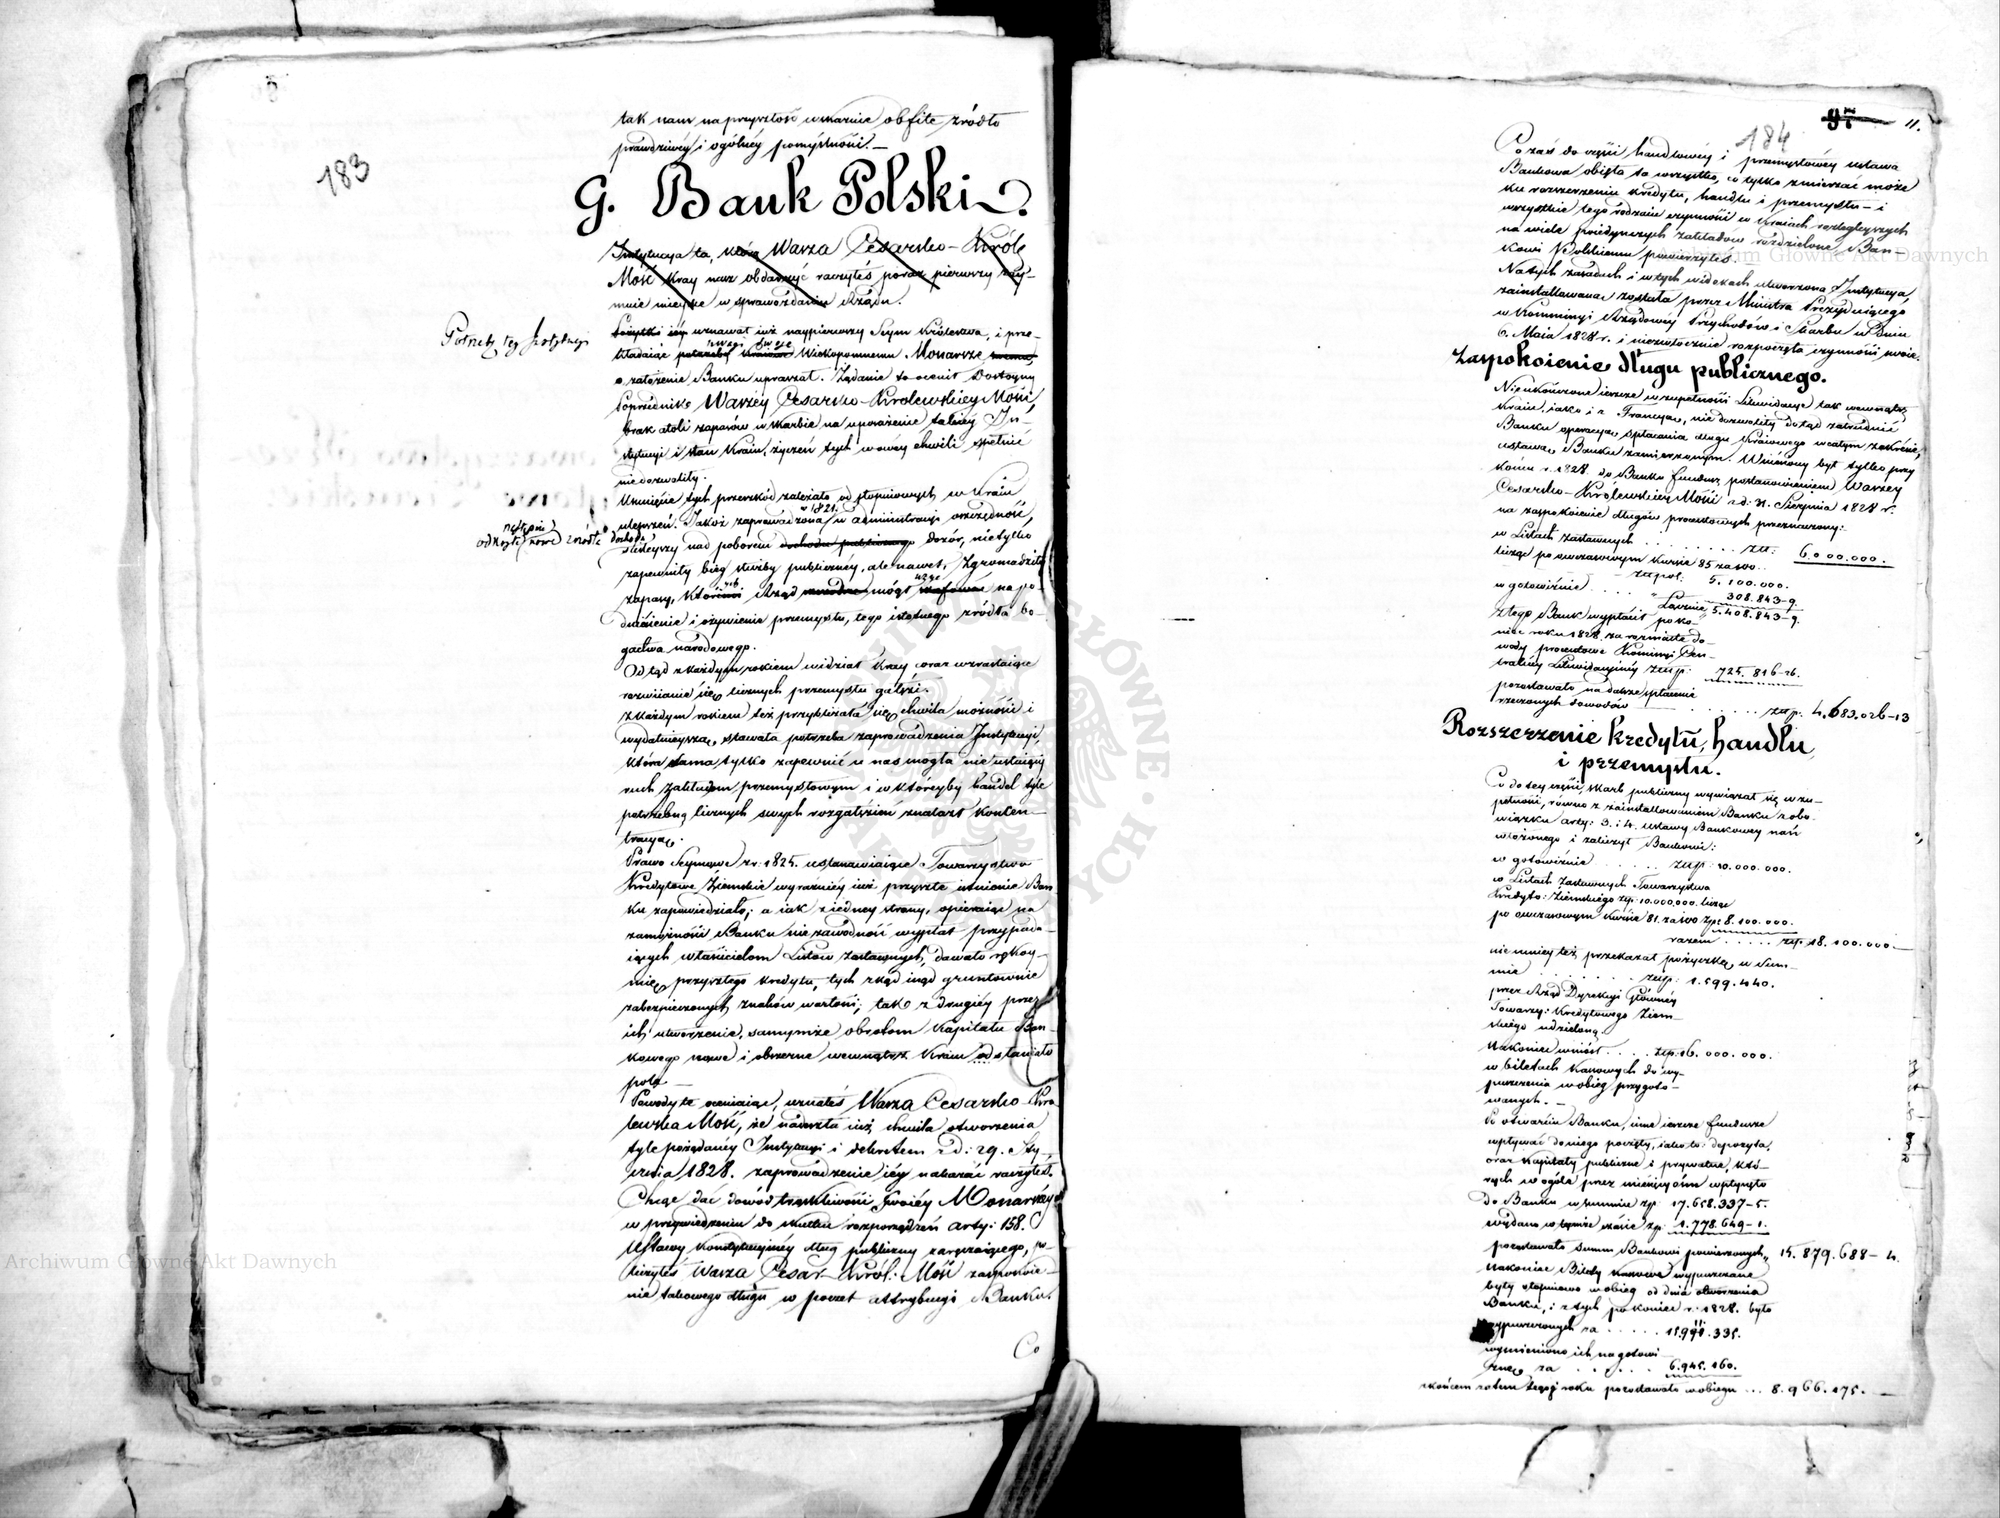 183
tak nam na przyszłość wskaznie obfite źródło
prawdziwéy i ogólnéy pomyślności. —
G. Bank Polski.
Instytucya ta, którą Wasza Cesarsko-Królew:
Mość kray nasz obdarzyć raczyłeś poraz pierwszy zay-
muie mieysce w sprawozdaniu Rządu.
Potrzebę tey Instytucyi
Pożytki iéy uznawał iuż naypierwszy Seym Królestwa, i prze-
kładaiąc uwagi swoje Wiekopomnemu Monarsze
o założenie Banku upraszał. Żądanie to ocenił Dostoyny
Poprzednik Waszéy Cesarsko-Królewskiéy Mości,
brak atoli zapasów w skarbie na uposażenie takiéy In-
stytucyi i stan Kraiu, życzeń tych w owéy chwili spełnić
niedozwoliły.
Usunięcie tych przeszkód zależało od stopniowych w Kraiu
ulepszeń. Jakoż zaprowadzona w 1821. w administracyi oszczędność,
następnie
odkryte nowe źródła dochodu
ściśleyszy nad poborem dochodu publicznego dozór, nietylko
zapewniły bieg służby publicznéy, ale nawet zgromadziły
zapasy, których Rząd mógł użyć na po-
dnieśienie i ożywienie przemysłu, tego istotnego źródła bo-
gactwa narodowego.
Odtąd z każdym rokiem widział kray coraz wzrastaiące
rozwiianie się licznych przemysłu gałęzi.
Z każdym rokiem też przybliżała się chwila możności i
wydatnieyszą stawała potrzeba zaprowadzenia Instytucyi
która sama tylko zapewnić u nas mogła nie ustaiący
ruch zakładom przemysłowym i w któréyby handel tyle
potrzebną licznych swych rozgałęzień znalazł koncen-
tracyą.
Prawo Seymowe z r: 1825. ustanawiaiące Towarzystwo
Kredytowe Ziemskie wyraźniéy iuż przyszłe istnienie Ban-
ku zapowiedziało; a iak z iednéy strony, opieraiąc na
zamożności Banku niezawodność wypłat przypada-
iących właścicielom Listów Zastawnych, dawało rękoy-
mię przyszłego kredytu, tych zkąd inąd gruntownie
zabezpieczonych znaków wartości; tak z drugiéy przez
ich utworzenie, samymże obrotom Kapitału Ban-
kowego nowe i obszerne wewnątrz Kraiu odsłaniało
pole.
Powody te oceniaiąc, uznałeś Wasza Cesarsko-Kró-
lewska Mość, że nadeszła iuż chwila otworzenia
tyle pożądanéy Instytucyi i dekretem z d: 29. Sty-
cznia 1828. zaprowadzenie iéy nakazać raczyłeś.
Chcąc dać dowód troskliwości Swoiéy Monarszéy
w przywiedzeniu do skutku rozporządzeń arty: 158.
Ustawy Konstytucyinéy dług publiczny zaręczaiącego, po-
liczyłeś Wasza Cesar-Król: Mość zaspokoie-
nie takowego długu w poczet attrybucyi Banku.
Co
184
11.
Co zaś do części handlowéy i przemysłowéy ustawa
Bankowa obięła to wszystko, co tylko zmierzać może
ku rozszerzeniu kredytu, handlu i przemysłu — i
wszystkie tego rodzaiu czynności w Kraiach rozlegleyszych
na wiele poiedynczych zakładów rozdzielone Ban-
kowi Polskiemu powierzyłeś.
Na tych zasadach i w tych widokach utworzona Instytucya,
zainstallowana została przez Ministra Prezyduiącego
w Kommissyi Rządowéy Przychodów i Skarbu w dniu
6. Maia 1828 r. i niezwłocznie rozpoczęła czynności swoie.
Zaspokoienie długu publicznego.
Nieukończone ieszcze w zupełności Likwidacye tak wewnątrz
Kraiu, iako i z Francyą, nie dozwoliły dotąd zatrudnić
Banku operacyą spłacania długu Kraiowego w całym zakresie,
ustawą Banku zamierzonym. Wniesiony był tylko przy
końcu r. 1828 do Banku fundusz postanowieniem Waszéy
Cesarsko-Królewskiéy Mości z d: Sierpnia 1828 r.
na zaspokoienie długów procentowych przeznaczony:
w Listach Zastawnych . . . . . . . . . złp: 6.000.000.
licząc po ówczasowym kursie 85 za 100 . .
złpol: 5.100.000.
w gotowiźnie . . . . " 308.843-9.
Łącznie 5.408.843-9.
Z tego Bank wypłacił po ko-
niec roku 1828 za rozmaite do-
wody procentowe Kommissyi Cen-
tralnéy Likwidacyinéy złp: 725.816-26.
pozostawało na dalsze spłacenie
rzeczonych dowodów . . . . . . złp: 4.683.026-13
Rozszerzenie kredytu, handlu
i przemysłu.
Co do tey części, skarb publiczny wywiązał się w zu-
pełności, równo z zainstallowaniem Banku z obo-
wiązku arty: 3. i 4. ustawy Bankowey nań
włożonego i zaliczył Bankowi:
w gotowiźnie . . . . . złp: 10.000.000.
w Listach Zastawnych Towarzystwa
Kredyto: Ziemskiego złp: 10.000.000. licząc
po ówczasowym kursie 81. za 100 złp: 8.100.000.
razem . . . . . złp. 18.100.000.—
niemniéy też przekazał pożyczkę w Sum-
mie . . . . . . . . złp: 1.599.440.
przez Rząd Dyrekcyi Głównéy
Towarzy: Kredytowego Ziem-
skiego udzieloną.
Nakoniec wniósł . . . . złp: 16.000.000.
w biletach Kassowych do wy-
puszczenia w obieg przygoto-
wanych. —
Po otwarciu Banku, inne ieszcze fundusze
wpływać do niego poczęły, iako to: depozyta,
oraz kapitały publiczne i prywatne, któ-
rych w ogóle przez miesięcy wpłynęło
do Banku w summie zp: 17.658.337-5.
wydano w tymże czasie zp: 1.778.649-1.
pozostawało summ Bankowi powierzonych „ 15.879.688-4.
Nakoniec Bilety Kassowe wypuszczane
były stopniowo w obieg od dnia otworzenia
Banku, i z tych po koniec r. 1828. było
wypuszczonych za . . . . . 15.911.335.
wymieniono ich na gotowi-
znę za . . . . . . 6.945.160.
z końcem zatem tegoż roku pozostawało w obiegu . . . 8.966.175.—
Archiwum Główne Akt Dawnych
Archiwum Główne Akt Dawnych